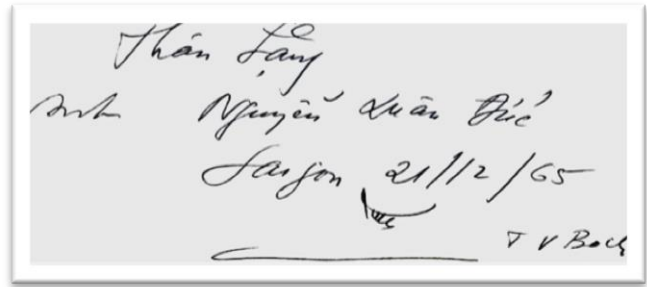 Thân Tặng
Anh Nguyễn Xuân Đức
Saigon 21/12/65
T V Bach